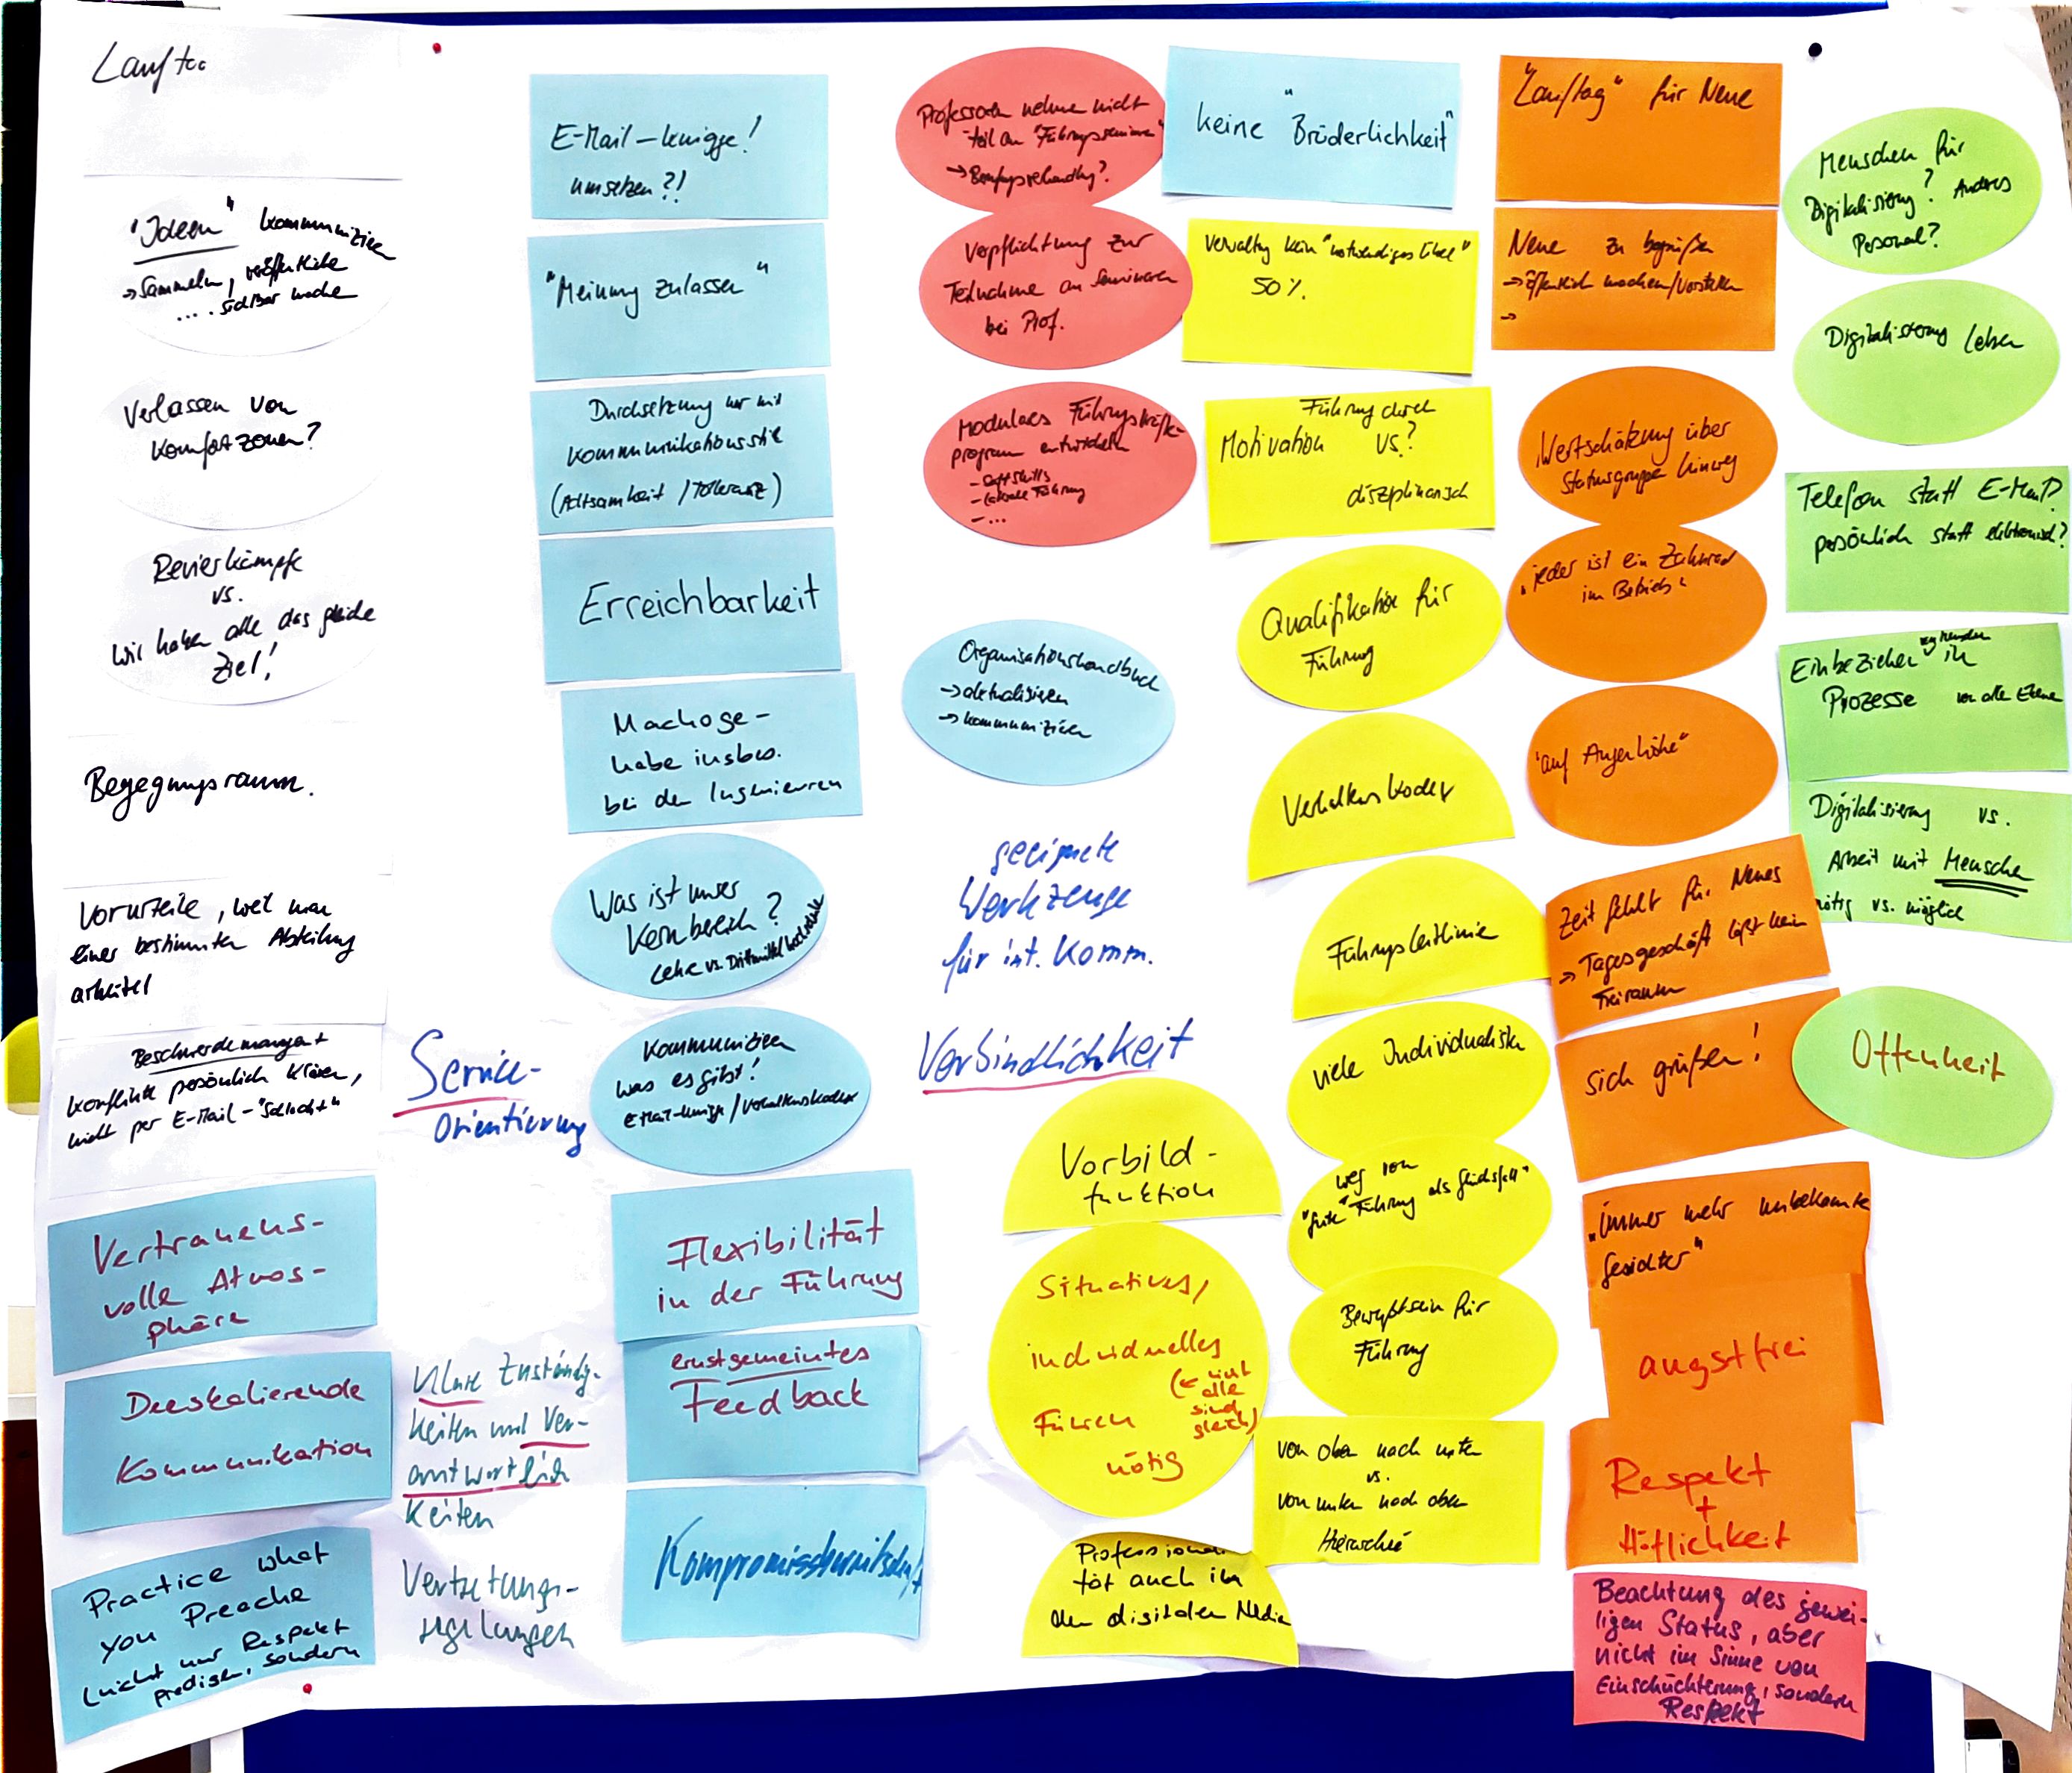 "Ideen" kommunizieren
→ Sammeln, veröffentliche
... sichtbar mache
Verlassen von
Komfortzonen?
Revierkämpfe
vs.
wir haben alle das gleiche
Ziel!
Begegnungsraum.
Vorurteile, weil man
einer bestimmten Abteilung
arbeitet
Beschwerdemanagement
Konflikte persönlich klären,
nicht per E-Mail-"Schlacht"
Vertrauens-
volle Atmos-
phäre
Deeskalierende
Kommunikation
Practice what
you Preache
(nicht nur Respekt
predigen, sondern
Service-
Orientierung
Klare Zuständig-
keiten und Ver-
antwortlich
Keiten
Vertretungs-
regelungen
E-Mail-Knigge!
umsetzen?!
"Meinung zulassen"
Durchsetzung nur mit
Kommunikationsstil
(Achtsamkeit / Toleranz)
Erreichbarkeit
Machoge-
habe insbes.
bei den Ingenieuren
Was ist unser
Kernbereich?
Lehre vs. Drittmittel
Kommunizieren
was es gibt!
E-Mail-Knigge / Verhaltenskodex
Flexibilität
in der Führung
ernstgemeintes
Feedback
Kompromissbereitschaft
Professoren nehme nicht
teil an "Führungsseminare"
→
Verpflichtung zur
Teilnahme an Seminaren
bei Prof.
Modulares Führungskräfte-
program entwickeln
- Softskills
- laterale Führung
- ...
Organisationshandbuch
→ aktualisieren
→ kommunizieren
geeignete
Werkzeuge
für int. Komm.
Verbindlichkeit
Vorbild-
funktion
Situatives,
individuelles
(← nicht
alle
sind
gleich)
Führen
nötig
Professionali
tät auch in
den digitalen Medien
keine "Brüderlichkeit"
Verwaltung kein "notwendiges Übel"
50%.
Führung durch
Motivation vs.?
disziplinarisch
Qualifikation für
Führung
Verhaltenskodex
Führungsleitlinie
viele Individualisten
weg von
"gute" Führung als Glücksfall"
Bewußtsein für
Führung
von oben nach unten
vs.
von unten nach oben
Hierarchie
"Lauftag" für Neue
Neue zu begrüßen
→ öffentlich machen/vorstellen
→
Wertschätzung über
Statusgruppe hinweg
"jeder ist ein Zahnrad
im Betrieb"
"auf Augenhöhe"
Zeit fehlt für Neues
→ Tagesgeschäft läßt kein
Freiraum
sich grüßen!
"immer mehr unbekannte
Gesichter"
angstfrei
Respekt
+
Höflichkeit
Beachtung des jewei-
ligen Status, aber
nicht im Sinne von
Einschüchterung, sondern
Respekt
Menschen für
Digitalisierung? Anderes
Personal?
Digitalisierung leben
Telefon statt E-Mail?
persönlich statt elektronisch?
Einbeziehen in
Prozesse von alle Ebene
Digitalisierung vs.
Arbeit mit Mensche
nötig vs. möglich
Offenheit